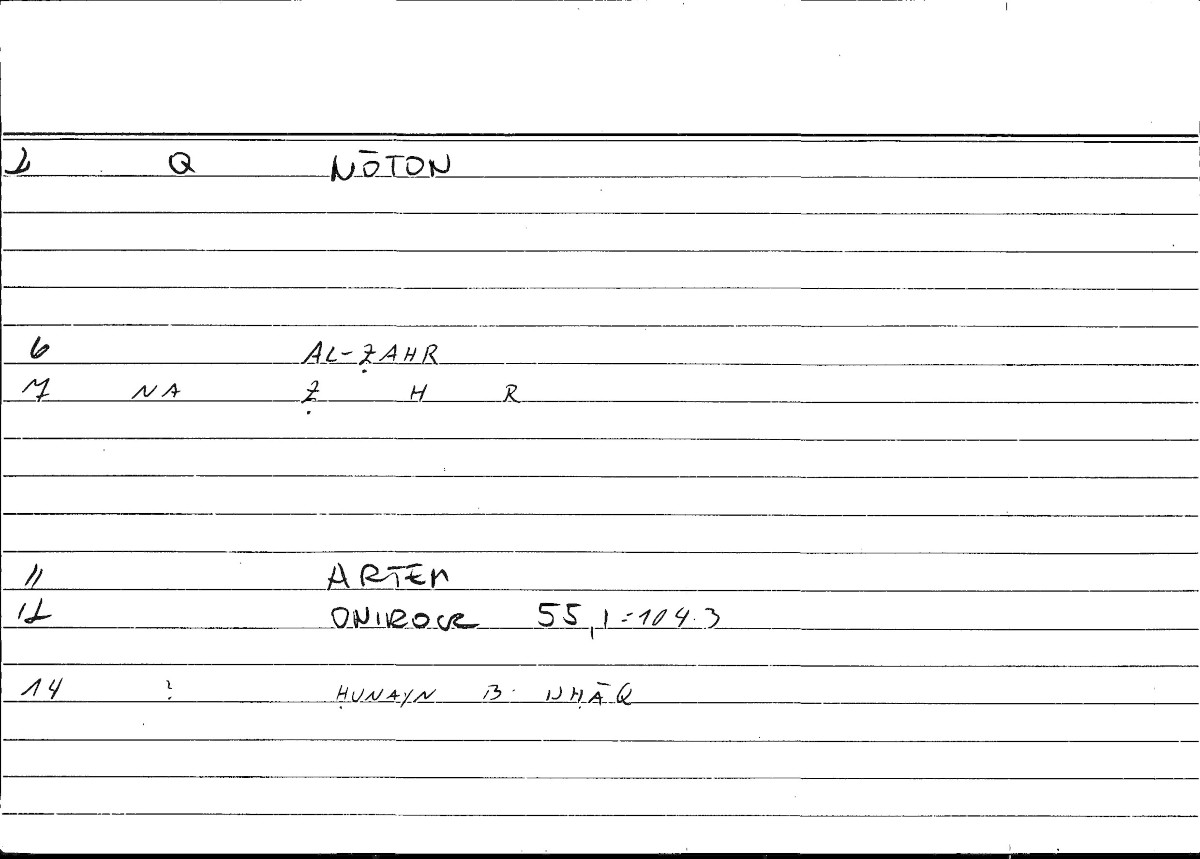 2 Q NŌTON
6 AL-ẒAHR
7 NA Ẓ H R
11 ARTEM
12 ONIROCR 55,1=104.3
14 ? ḤUNAYN B. ISḤĀQ